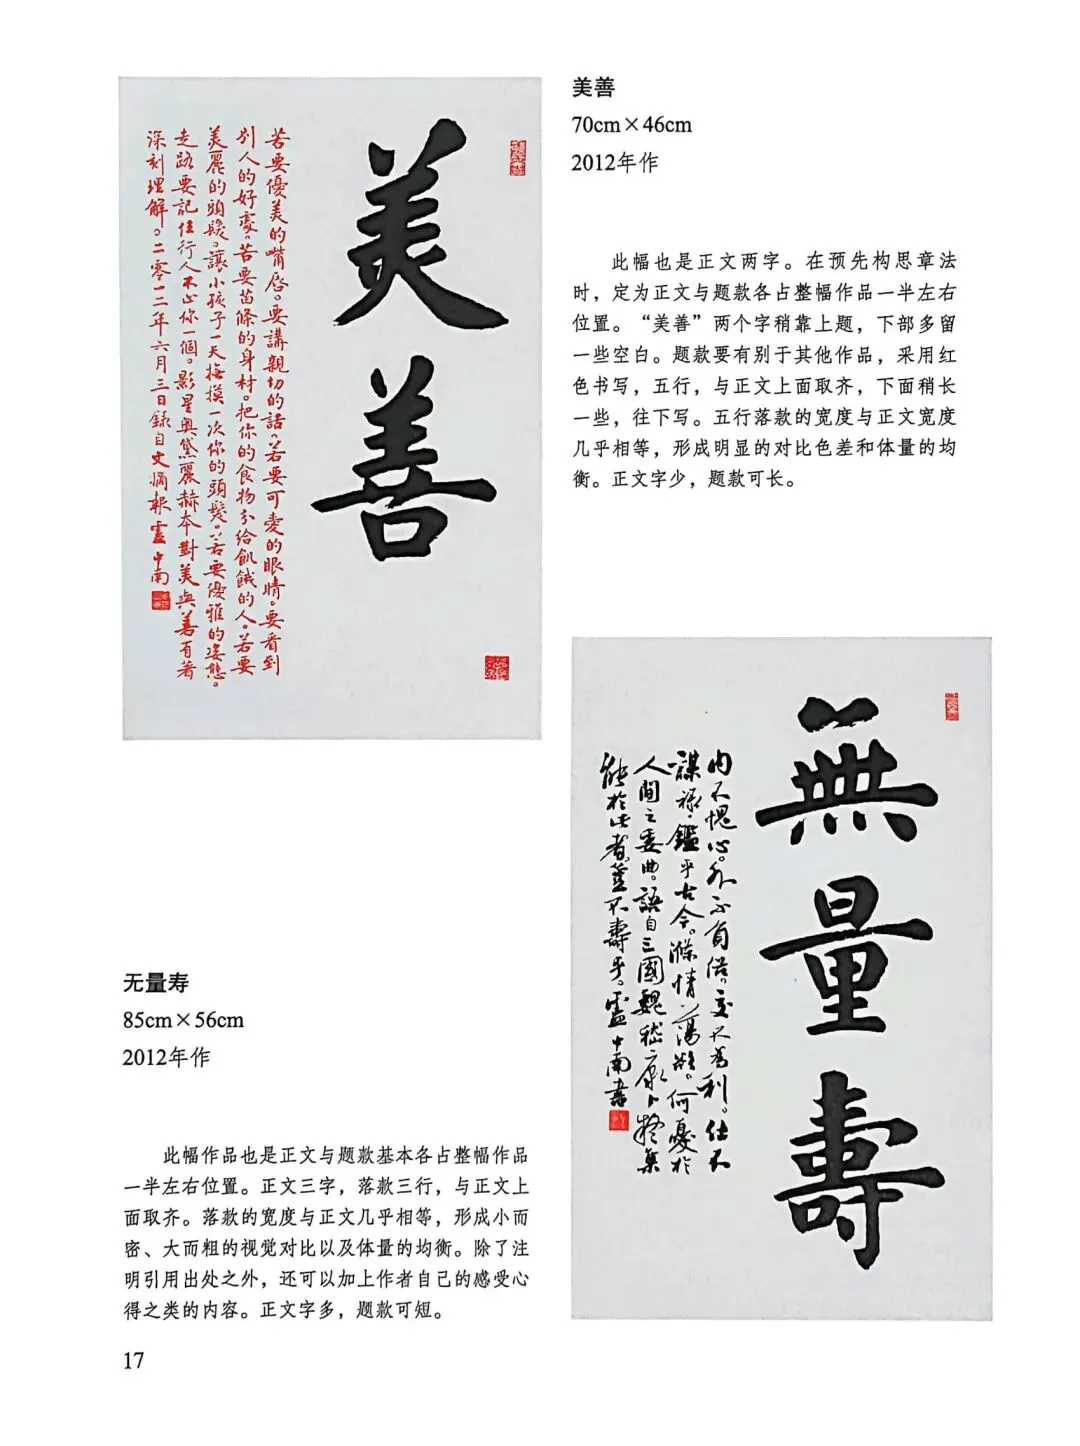 美善
70cm×46cm
2012年作
此幅也是正文两字。在预先构思章法
时，定为正文与题款各占整幅作品一半左右
位置。“美善”两个字稍靠上题，下部多留
一些空白。题款要有别于其他作品，采用红
色书写，五行，与正文上面取齐，下面稍长
一些，往下写。五行落款的宽度与正文宽度
几乎相等，形成明显的对比色差和体量的均
衡。正文字少，题款可长。
美善
若要優美的嘴唇。要講親切的話。若要可愛的眼睛。要看到
別人的好處。若要苗條的身材。把你的食物分給飢餓的人。若要
美麗的頭髮。讓小孩子一天撫摸一次你的頭髮。若要優雅的姿態。
走路要記住行人不止你一個。影星奧黛麗赫本對美與善有着
深刻理解。二零一二年六月三日錄自文摘報盧中南
無量壽
内不愧心。外不負俗。交不為利。仕不
謀祿。鑑乎古今。滌情蕩欲。何憂於
人間之委曲。語自三國魏嵇康卜疑集
能於此者。豈不壽乎。盧中南書
无量寿
85cm×56cm
2012年作
此幅作品也是正文与题款基本各占整幅作品
一半左右位置。正文三字，落款三行，与正文上
面取齐。落款的宽度与正文几乎相等，形成小而
密、大而粗的视觉对比以及体量的均衡。除了注
明引用出处之外，还可以加上作者自己的感受心
得之类的内容。正文字多，题款可短。
17